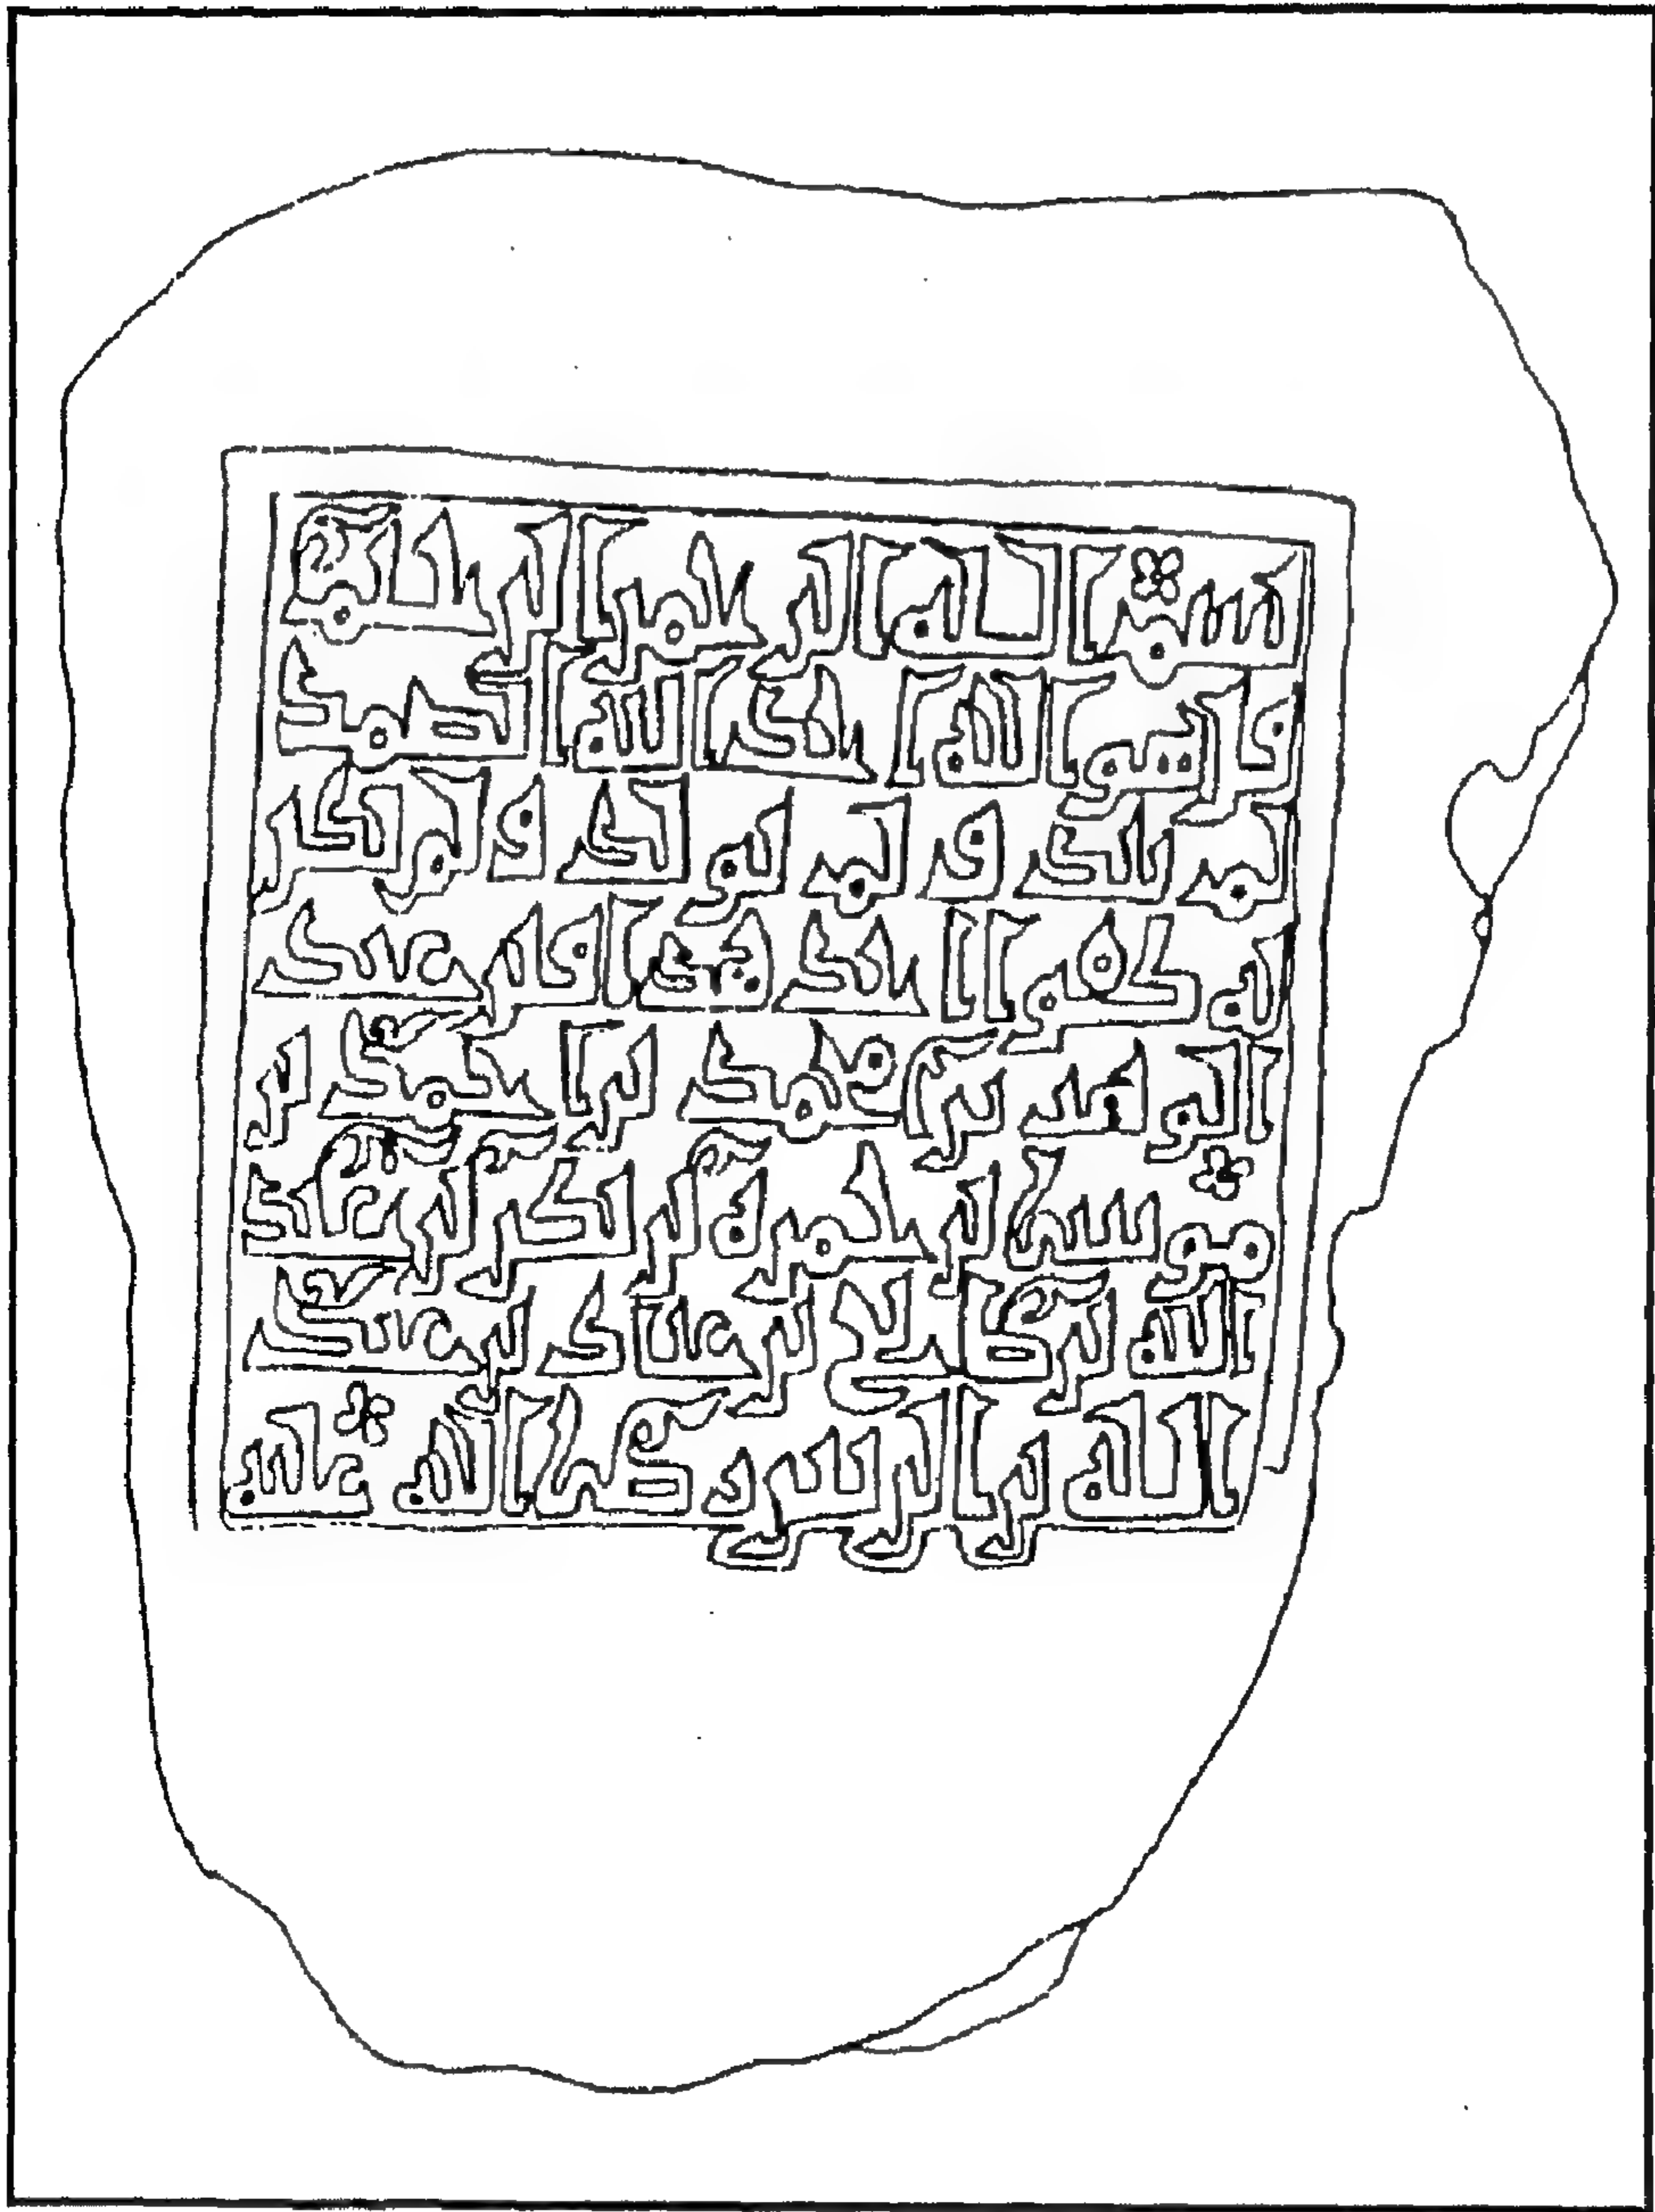 بسم الله الرحمن الرحيم
قل هو الله احد الله الصمد
لم يلد ولم يولد ولم يكن
له كفوا احد هذا قبر عبد
الواحد بن محمد بن احمد بن
موسى بن حمزه بن بكر بن عبد
الله بن صالح بن عباد بن عبد
الله بن الزبير صلى الله عليه